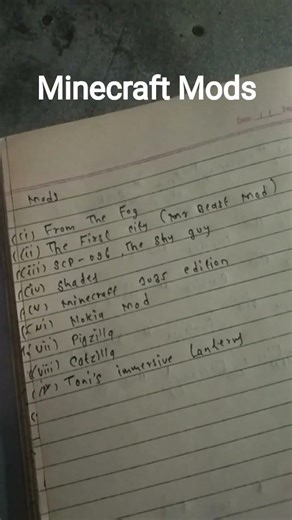 Minecraft Mods
Date
Mods
(i) From The Fog
(ii) The First city (Mr Beast Mod)
(iii) SCP-096, The shy guy
(iv) Shaded
(v) Minecraft 2025 edition
(vi) Nokia Mod
(vii) Pigzilla
(viii) Catzilla
(ix) Toni's immersive lanterns